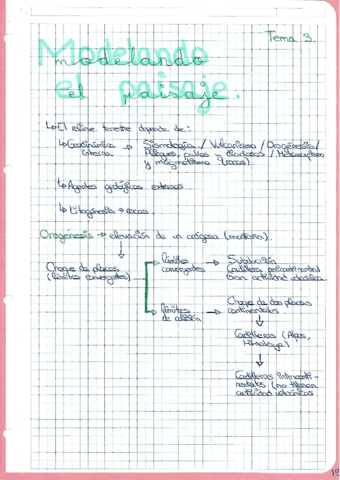 Tema 3.
Modelando
el paisaje.
↳ El relieve terrestre depende de:
↳ Geodinámica → Sismología / Vulcanismo / Orogénesis /
interna Pliegues, fallas y diaclasas / Metamorfismo
y magmatismo (rocas)
↳ Agentes geológicos externos.
↳ Litogénesis → rocas.
Orogénesis → elevación de un orógeno (montaña).
Choque de placas
(límites convergentes)
límites
convergentes → Subducción
(cordillera pericontinental)
Gran actividad volcánica.
límites
de colisión → Choque de dos placas
continentales
Cordilleras (Alpes,
Himalaya)
Cordilleras intraconti-
nentales (no tienen
actividad volcánica.